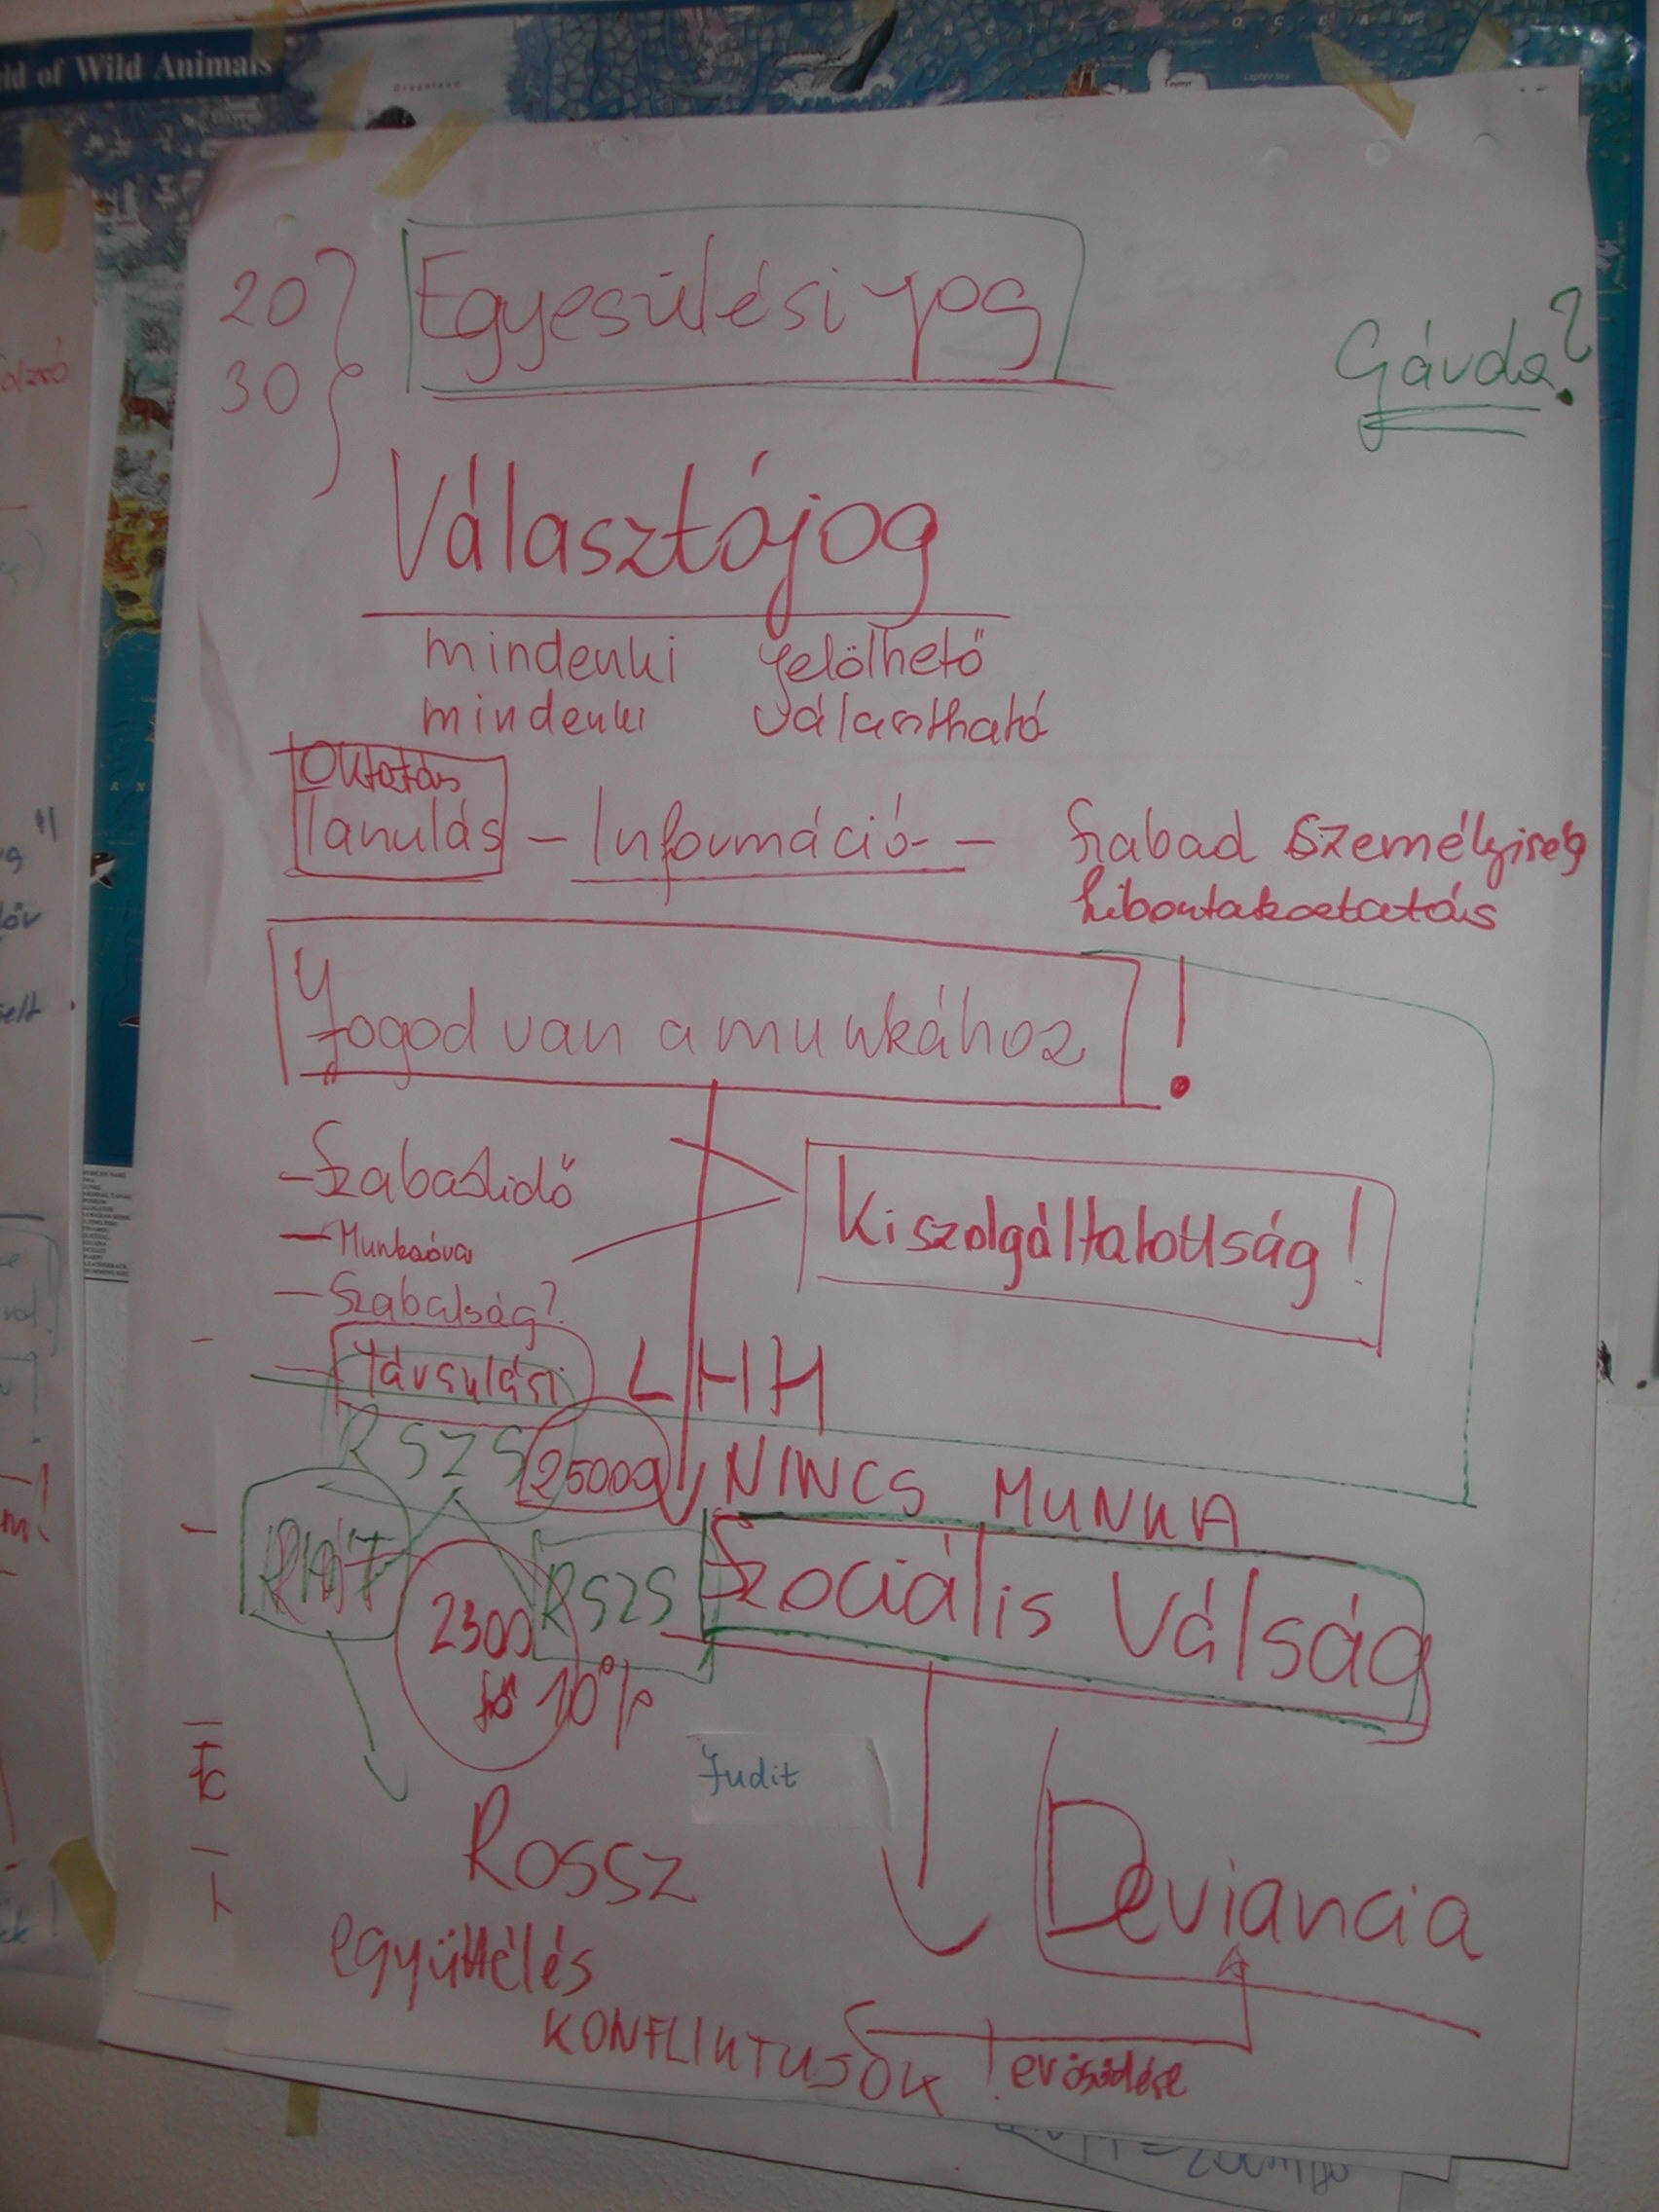 ld of Wild Animals
ARCTIC OCEAN
Greenland
Laptev Sea
20
30
Egyesülési jog
Gárda?
Választójog
mindenki jelölhető
mindenki választható
Oktatás
Tanulás – Információ – Szabad személyiség
kibontakoztatás
Jogod van a munkához !
– Szabadidő
– Munkaóra
– Szabadság?
– Társulási
Kiszolgáltatottság!
LHH
RSZS
25000
NINCS MUNKA
RSZS
Szociális Válság
2300
fő 10%
Judit
Rossz
együttélés
Deviancia
KONFLIKTUSOK ! erősödése